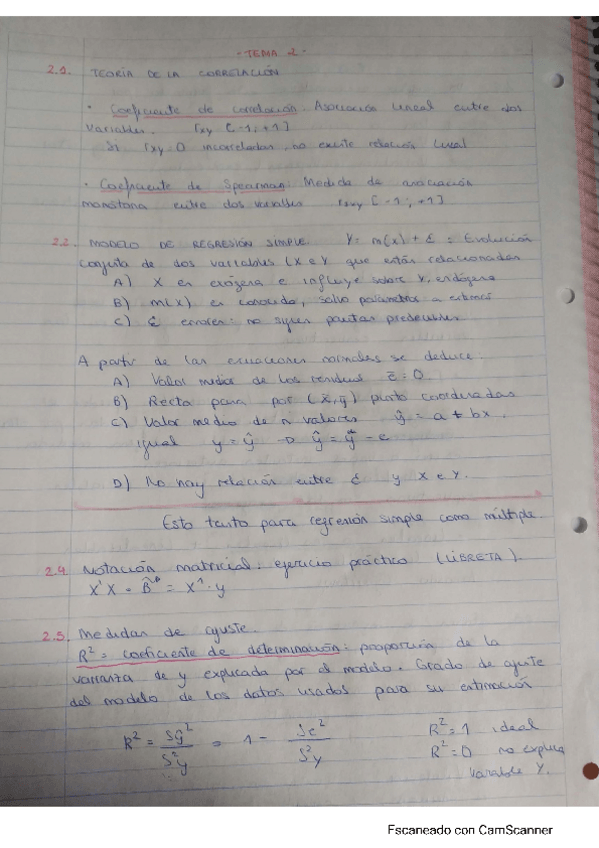 - TEMA 2 -
2.1. TEORÍA DE LA CORRELACIÓN
• Coeficiente de correlación: Asociación lineal entre dos
variables. rxy [-1, +1]
Si rxy=0 incorreladas, no existe relación lineal
• Coeficiente de Spearman: Medida de asociación
monótona entre dos variables rsxy [-1, +1]
2.2. MODELO DE REGRESIÓN SIMPLE. Y = m(x) + Ɛ = Evolución
conjunta de dos variables (X e Y que están relacionadas
A) X es exógena e influye sobre Y, endógena
B) m(x) es conocida, salvo parámetros a estimar
C) Ɛ errores: no siguen pautas predecibles
A partir de las ecuaciones normales se deduce:
A) Valor medio de los residuos e̅ = 0.
B) Recta pasa por (x̅, y̅) punto coordenadas
C) Valor medio de n valores ŷ = a + bx,
igual y = ŷ → ŷ = y - e
D) No hay relación entre Ɛ y X e Y.
Esto tanto para regresión simple como múltiple.
2.4. Notación matricial: ejercicio práctico (LIBRETA).
X'X = B̂ = X'·y
2.5. Medidas de ajuste.
R² = coeficiente de determinación: proporción de la
varianza de y explicada por el modelo. Grado de ajuste
del modelo de los datos usados para su estimación
R² = Sŷ² / S²y = 1 - Se² / S²y
R²=1 ideal
R²=0 no explica
variable Y.
Escaneado con CamScanner